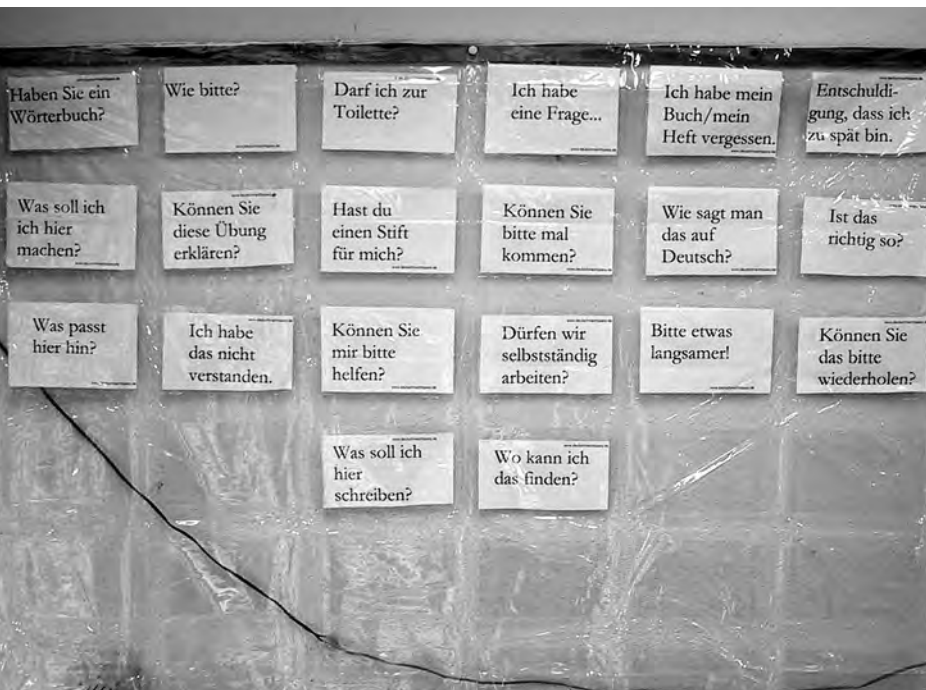 Haben Sie ein
Wörterbuch?
Wie bitte?
Darf ich zur
Toilette?
Ich habe
eine Frage...
Ich habe mein
Buch/mein
Heft vergessen.
Entschuldi-
gung, dass ich
zu spät bin.
Was soll ich
ich hier
machen?
Können Sie
diese Übung
erklären?
Hast du
einen Stift
für mich?
Können Sie
bitte mal
kommen?
Wie sagt man
das auf
Deutsch?
Ist das
richtig so?
Was passt
hier hin?
Ich habe
das nicht
verstanden.
Können Sie
mir bitte
helfen?
Dürfen wir
selbstständig
arbeiten?
Bitte etwas
langsamer!
Können Sie
das bitte
wiederholen?
Was soll ich
hier
schreiben?
Wo kann ich
das finden?